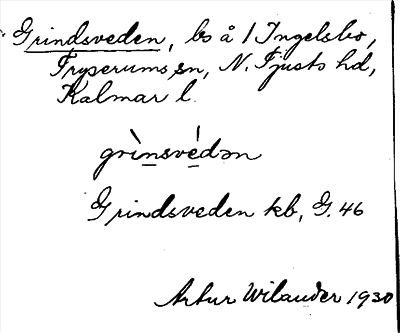 Grindsveden, bs å 1 Ingelsbo,
Tryserums sn, N. Tjusts hd,
Kalmar l.
grı̀nsvédən
Grindsveden kb, G. 46
Artur Wilander 1930